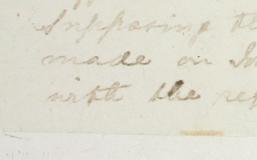 Supposing th
made on In
with the re